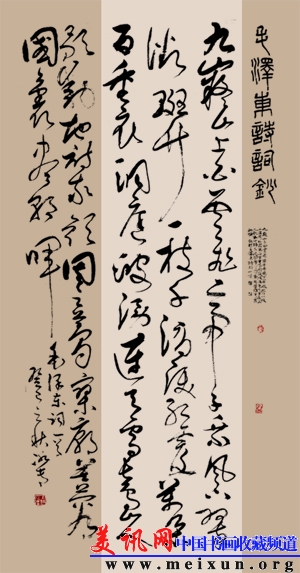 毛澤東詩詞鈔
九嶷山上白雲飛帝子乘風下翠
微斑竹一枝千滴淚紅霞萬朵
百重衣洞庭波涌連天雪長島人
歌動地詩我欲因之夢寥廓芙蓉
國裏盡朝暉
毛澤東詞一首
之秋
美讯网 中国书画收藏频道
www.meixun.org